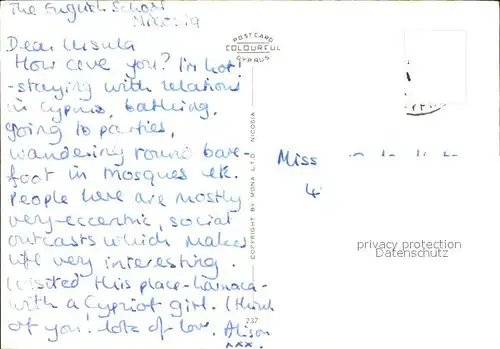 The English School
Nicosia
Dear Ursula
How are you? I'm hot!
-staying with relations
in Cyprus, bathing,
going to parties,
wandering round bare-
foot in mosques etc.
People here are mostly
very eccentric, social
outcasts which makes
life very interesting.
I visited this place-Larnaca-
with a Cypriot girl. I think
of you! lots of love. Alison
xxx.
POSTCARD
COLOURFUL
CYPRUS
COPYRIGHT BY MONA LTD. NICOSIA
237
Miss
4
privacy protection
Datenschutz